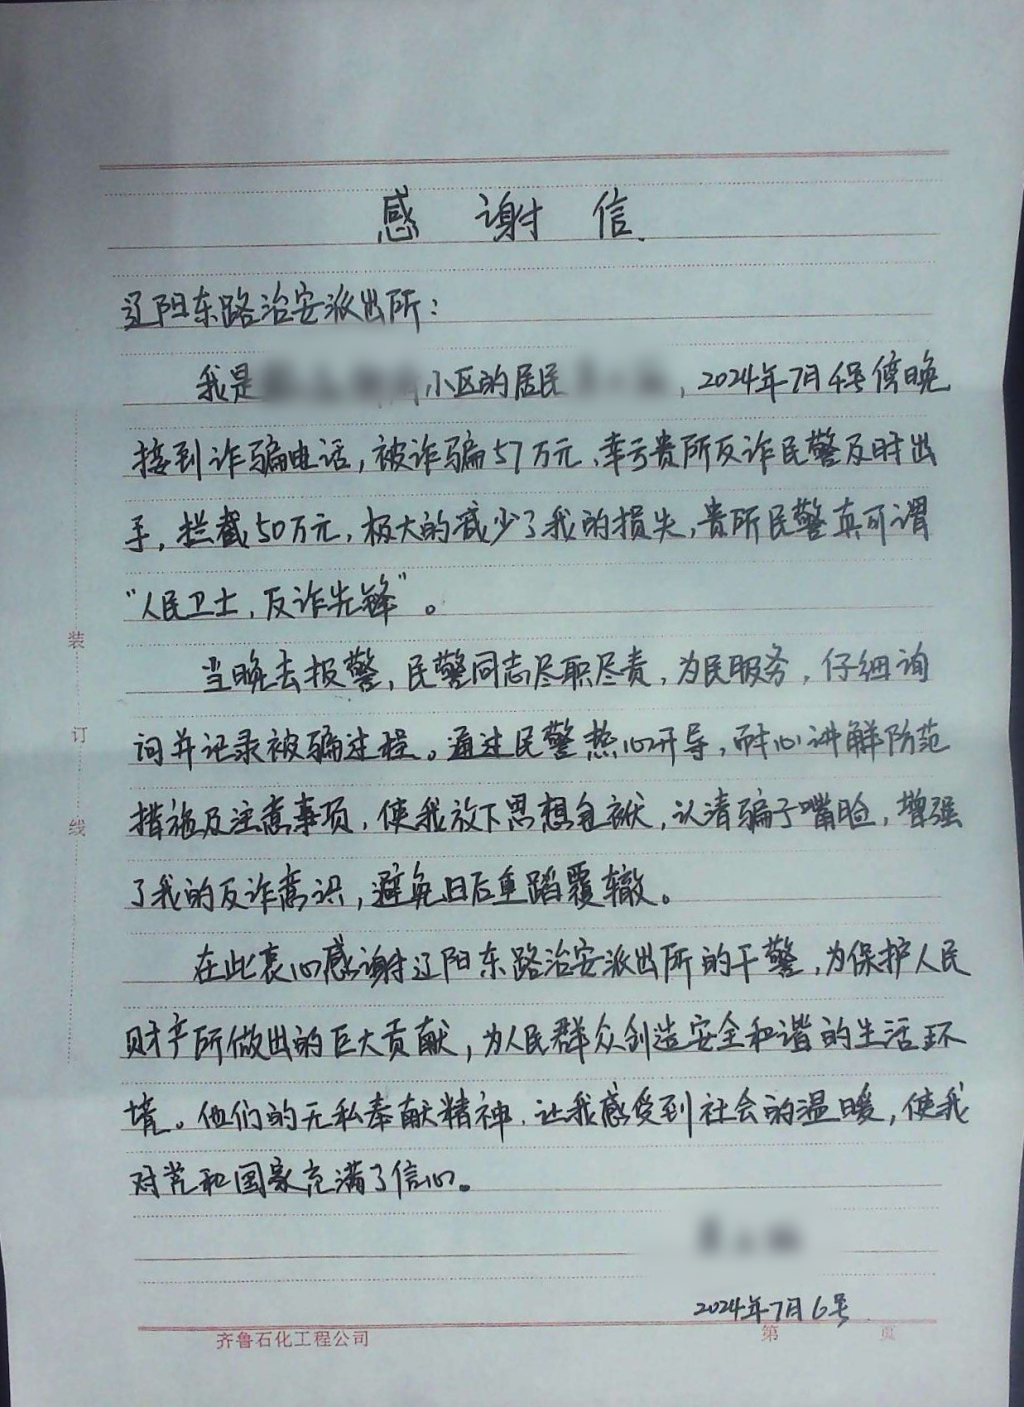 感谢信
辽阳东路治安派出所：
我是 小区的居民 ，2024年7月4号傍晚
接到诈骗电话，被诈骗57万元，幸亏贵所反诈民警及时出
手，拦截50万元，极大的减少了我的损失，贵所民警真可谓
“人民卫士，反诈先锋”。
当晚去报警，民警同志尽职尽责，为民服务，仔细询
问并记录被骗过程。通过民警热心开导，耐心讲解防范
措施及注意事项，使我放下思想包袱，认清骗子嘴脸，增强
了我的反诈意识，避免日后重蹈覆辙。
在此衷心感谢辽阳东路治安派出所的干警，为保护人民
财产所做出的巨大贡献，为人民群众创造安全和谐的生活环
境。他们的无私奉献精神，让我感受到社会的温暖，使我
对党和国家充满了信心。
2024年7月6号
装
订
线
齐鲁石化工程公司
第 页